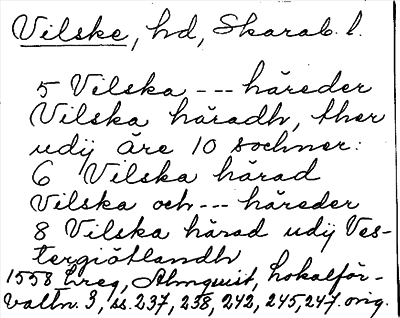 Vilske, hd, Skarab. l.
5 Vilska --- häreder
Vilska häradh, ther
udij äre 10 sochner:
6 Vilska härad
Vilska och --- häreder
8 Vilska härad udij Ves-
tergiötlandh
1558 Lreg, Almquist, Lokalför-
valtn. 3, ss. 237, 238, 242, 245, 247. orig.